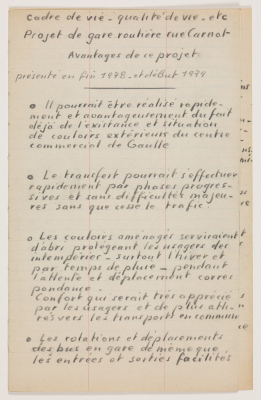 Cadre de vie - qualité de vie - etc
Projet de gare routière rue Carnot
Avantages de ce projet
présenté en fin 1978 et début 1979
• Il pourrait être réalisé rapide-
ment et avantageusement du fait
déjà de l'existance et situation
de couloirs extérieurs du centre
commercial de Gaulle
• Le transfert pourrait s'effectuer
rapidement par phases progres-
sives et sans difficultés majeu-
res sans que cesse le trafic
• Les couloirs aménagés serviraient
d'abri protégeant les usagers des
intempérier - surtout l'hiver et
par temps de pluie - pendant
l'attente et déplacement corres
pondance.
Confort qui serait très apprécié
par les usagers et de plus atti-
res vers les transports en commun
• Les rotations et déplacements
des bus en gare de même que
les entrées et sorties facilités